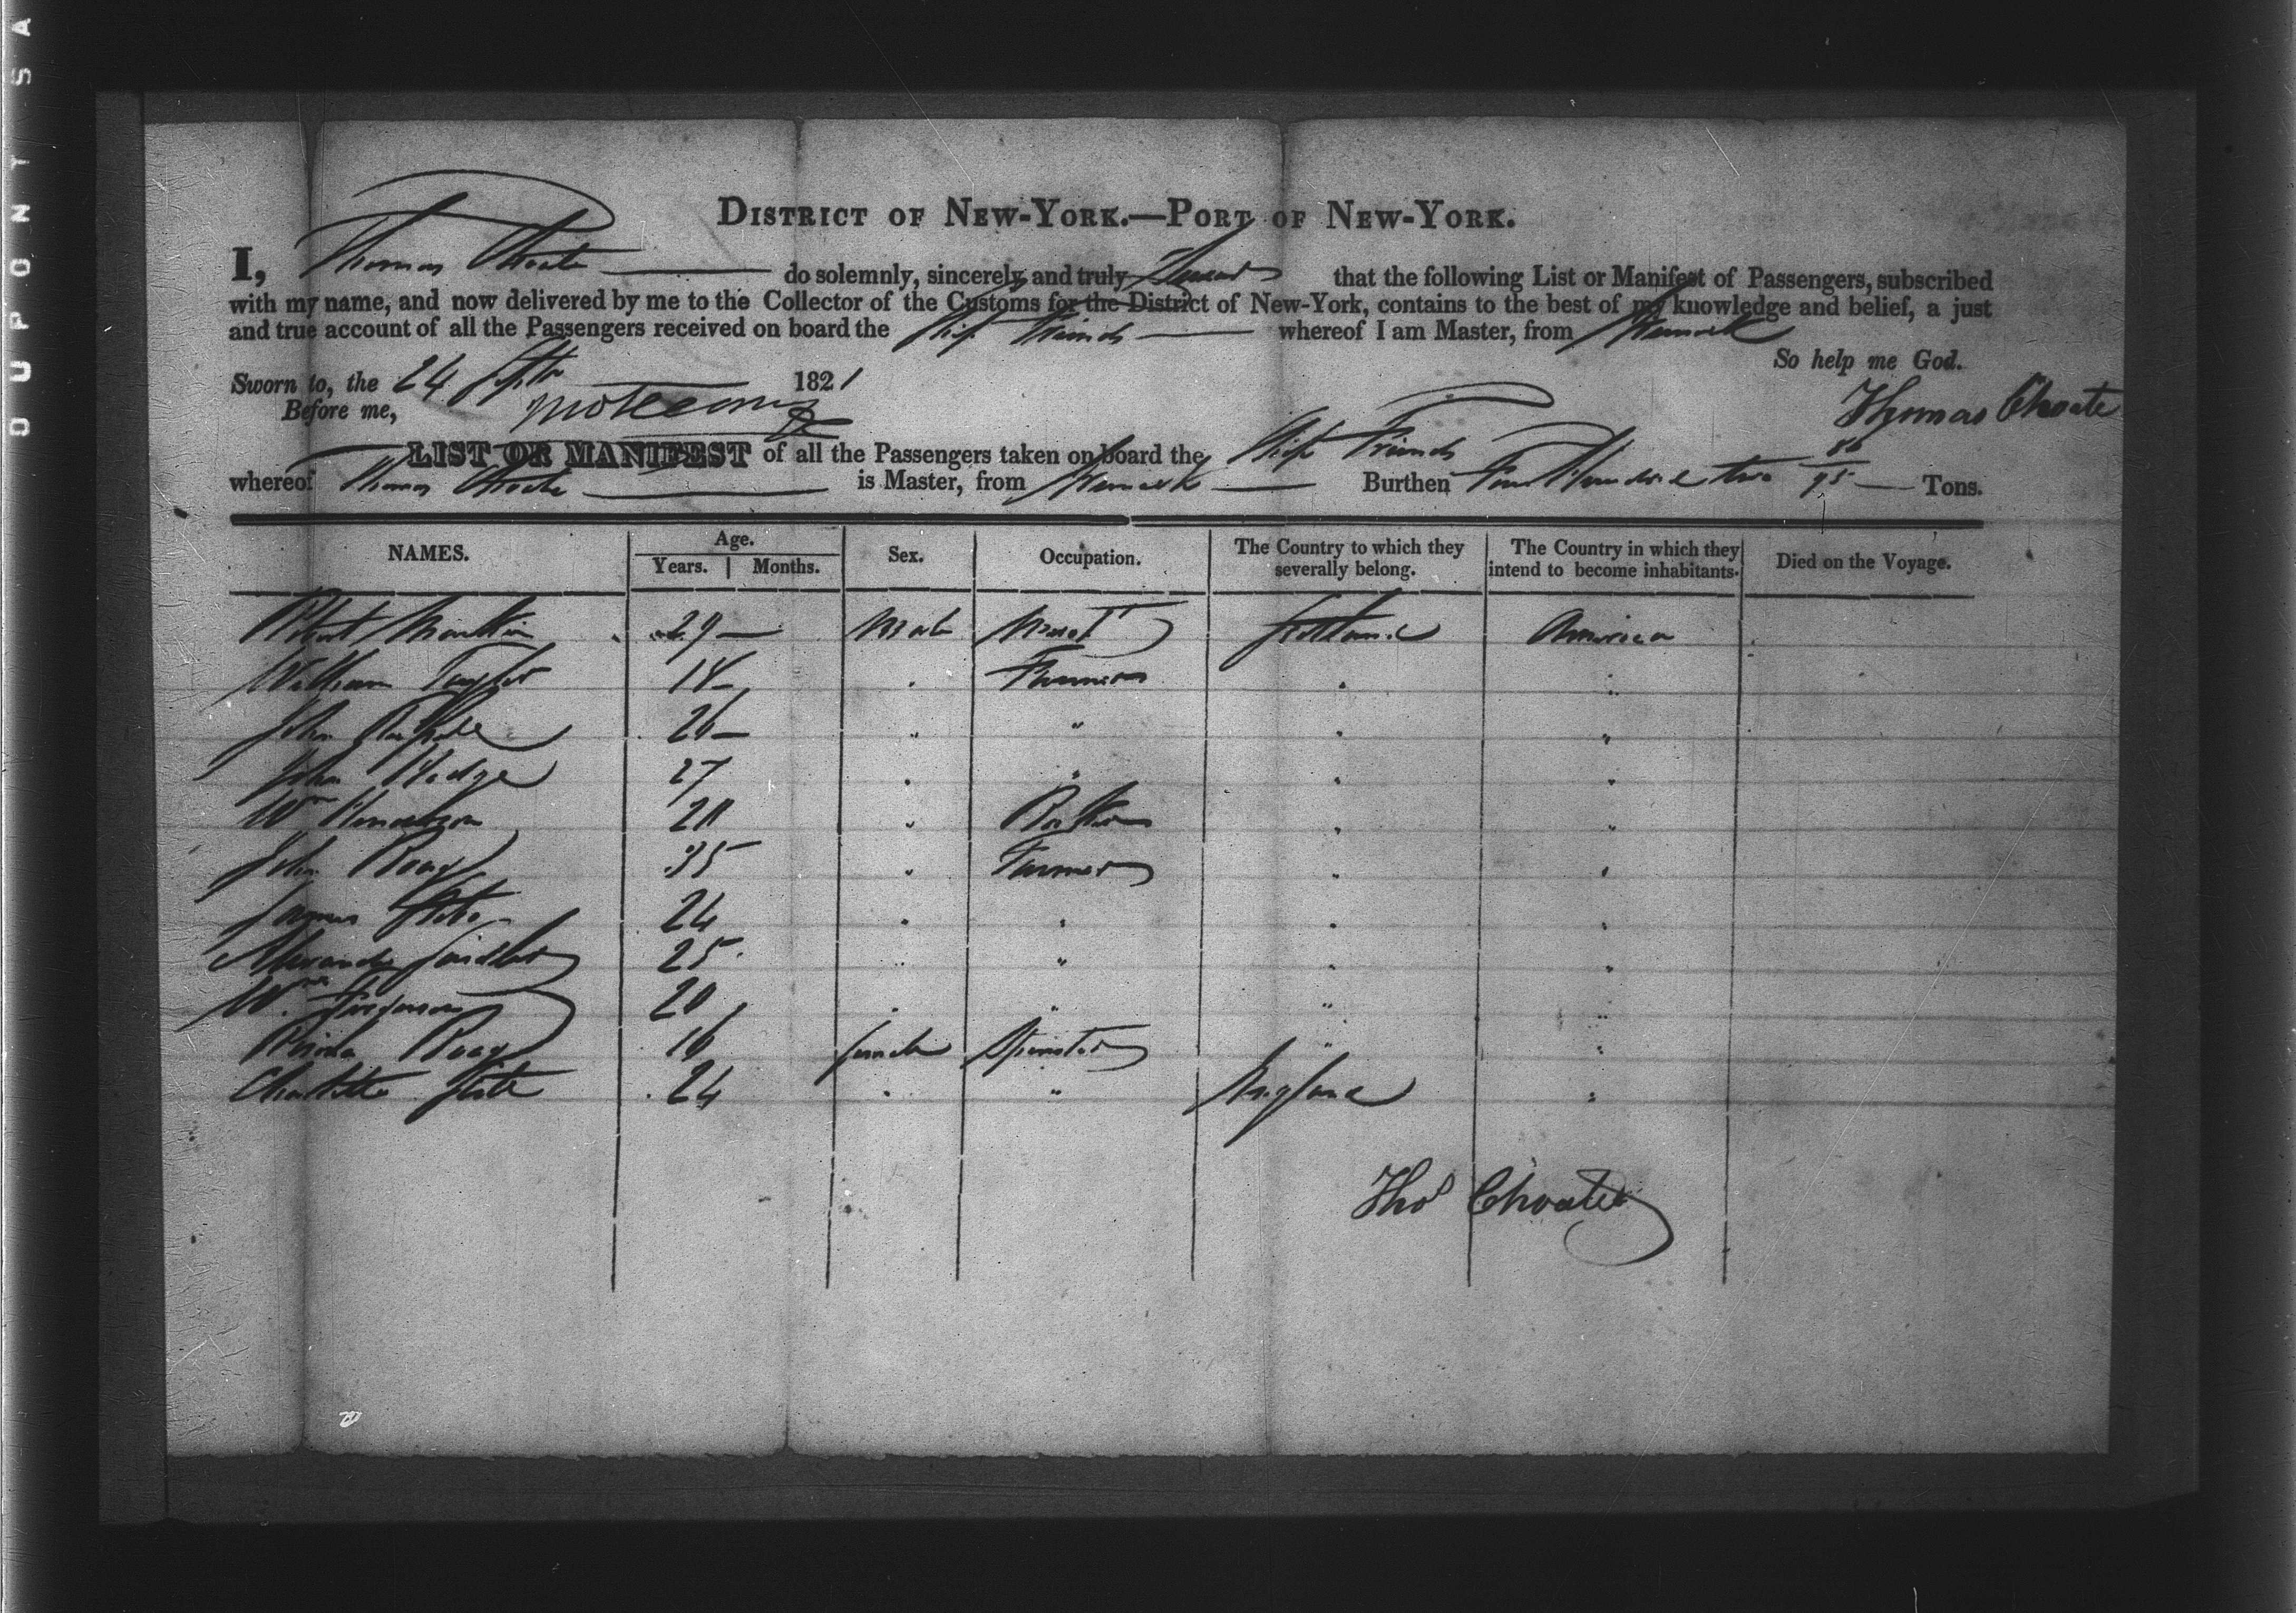 DUPONT SA
DISTRICT OF NEW-YORK.—PORT OF NEW-YORK.
I, Thomas Choate do solemnly, sincerely and truly Swear that the following List or Manifest of Passengers, subscribed
with my name, and now delivered by me to the Collector of the Customs for the District of New-York, contains to the best of my knowledge and belief, a just
and true account of all the Passengers received on board the Ship Friends whereof I am Master, from Greenock
So help me God.
Sworn to, the 24 Septr 1821
Before me,
Thomas Choate
LIST OR MANIFEST of all the Passengers taken on board the Ship Friends
whereof Thomas Choate is Master, from Greenock Burthen Four Hundred two 86/95 Tons.
NAMES. Age. Years. Months. Sex. Occupation. The Country to which they severally belong. The Country in which they intend to become inhabitants. Died on the Voyage.
Robert 29 Male Mercht Scotland America
William Taylor 18 " Farmer " "
John 26 " " " "
John Hodge 27 " " " "
Wm Henderson 20 " " "
John 35 " Farmer " "
James 24 " " " "
Alexander 25 " " " "
Wm Ferguson 20 " " " "
16 female Spinster " "
Charlotte 24 " " England "
Thos Choate